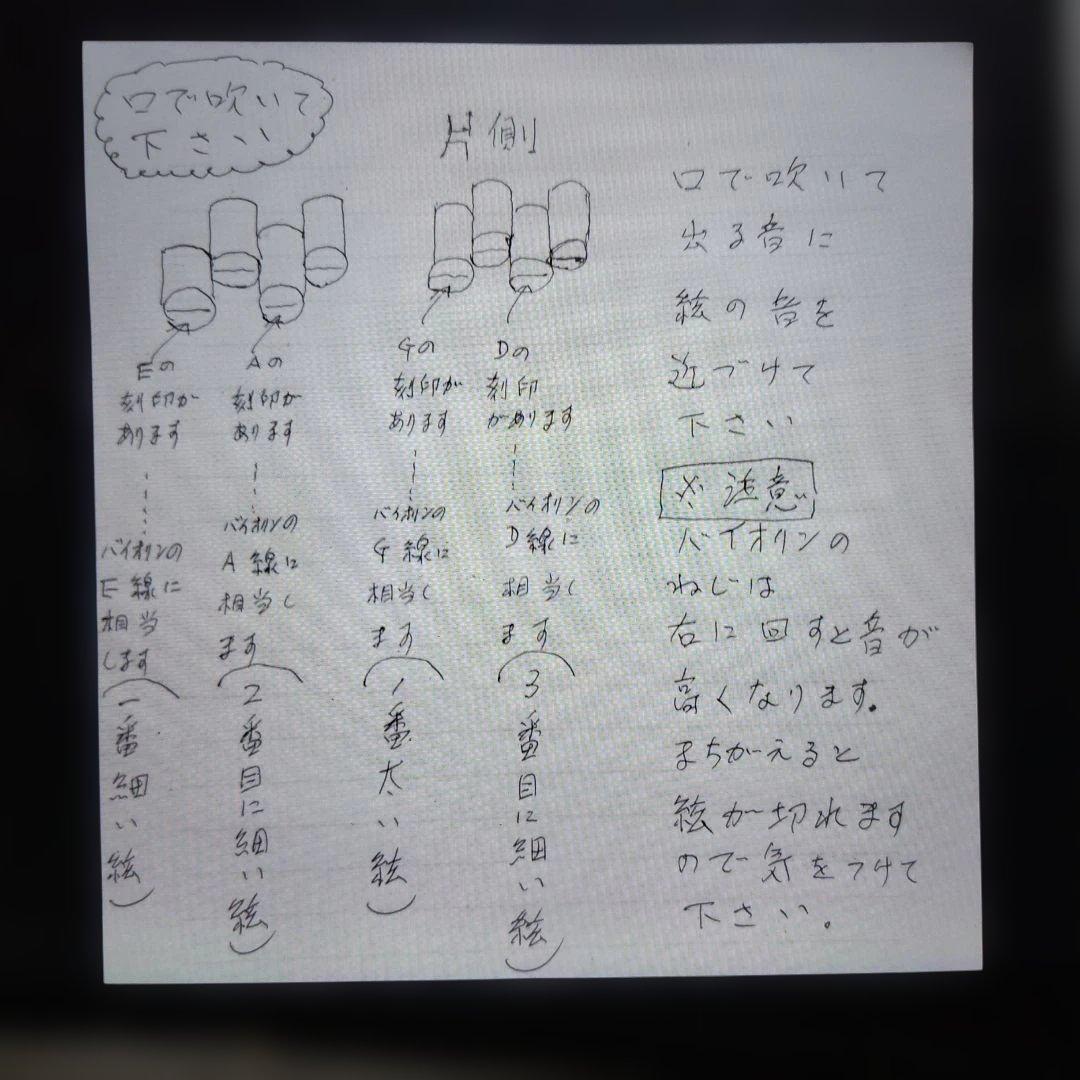 口で吹いて
下さい
片側
Eの
刻印が
あります
バイオリンの
E線に
相当
します
(一番細い絃)
Aの
刻印が
あります
バイオリンの
A線に
相当し
ます
(2番目に細い絃)
Gの
刻印が
あります
バイオリンの
G線に
相当し
ます
(1番太い絃)
Dの
刻印
があります
バイオリンの
D線に
相当し
ます
(3番目に細い絃)
口で吹いて
出る音に
絃の音を
近づけて
下さい
※注意
バイオリンの
ねじは
右に回すと音が
高くなります。
まちがえると
絃が切れます
ので気をつけて
下さい。